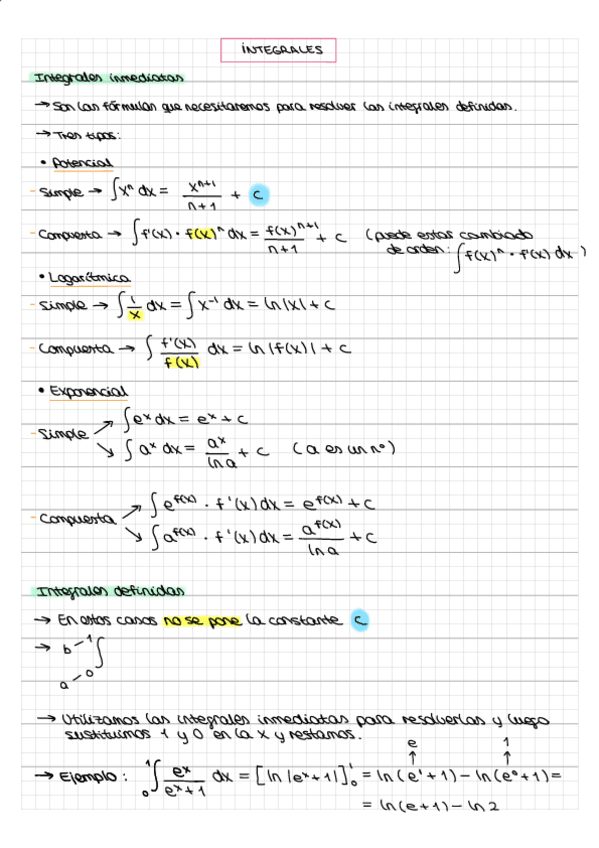 INTEGRALES
Integrales inmediatas
→ Son las fórmulas que necesitaremos para resolver las integrales definidas.
→ Tres tipos:
• Potencial
- Simple → ∫xⁿ dx = xⁿ⁺¹/(n+1) + C
- Compuesta → ∫f'(x) · f(x)ⁿ dx = f(x)ⁿ⁺¹/(n+1) + C (puede estar cambiado
de orden: ∫f(x)ⁿ · f'(x) dx)
• Logarítmica
- Simple → ∫ 1/x dx = ∫ x⁻¹ dx = ln|x| + C
- Compuesta → ∫ f'(x)/f(x) dx = ln|f(x)| + C
• Exponencial
- Simple ↗ ∫eˣ dx = eˣ + C
↘ ∫ aˣ dx = aˣ/ln a + C (a es un nº)
- Compuesta ↗ ∫ e^f(x) · f'(x) dx = e^f(x) + C
↘ ∫ a^f(x) · f'(x) dx = a^f(x)/ln a + C
Integrales definidas
→ En estos casos no se pone la constante C
→ b - 1 ∫
a - 0
→ Utilizamos las integrales inmediatas para resolverlas y luego
sustituimos 1 y 0 en la x y restamos.
e 1
↑ ↑
→ Ejemplo: ¹₀∫ eˣ/(eˣ+1) dx = [ln|eˣ+1|]¹₀ = ln(e¹+1) - ln(e⁰+1) =
= ln(e+1) - ln 2